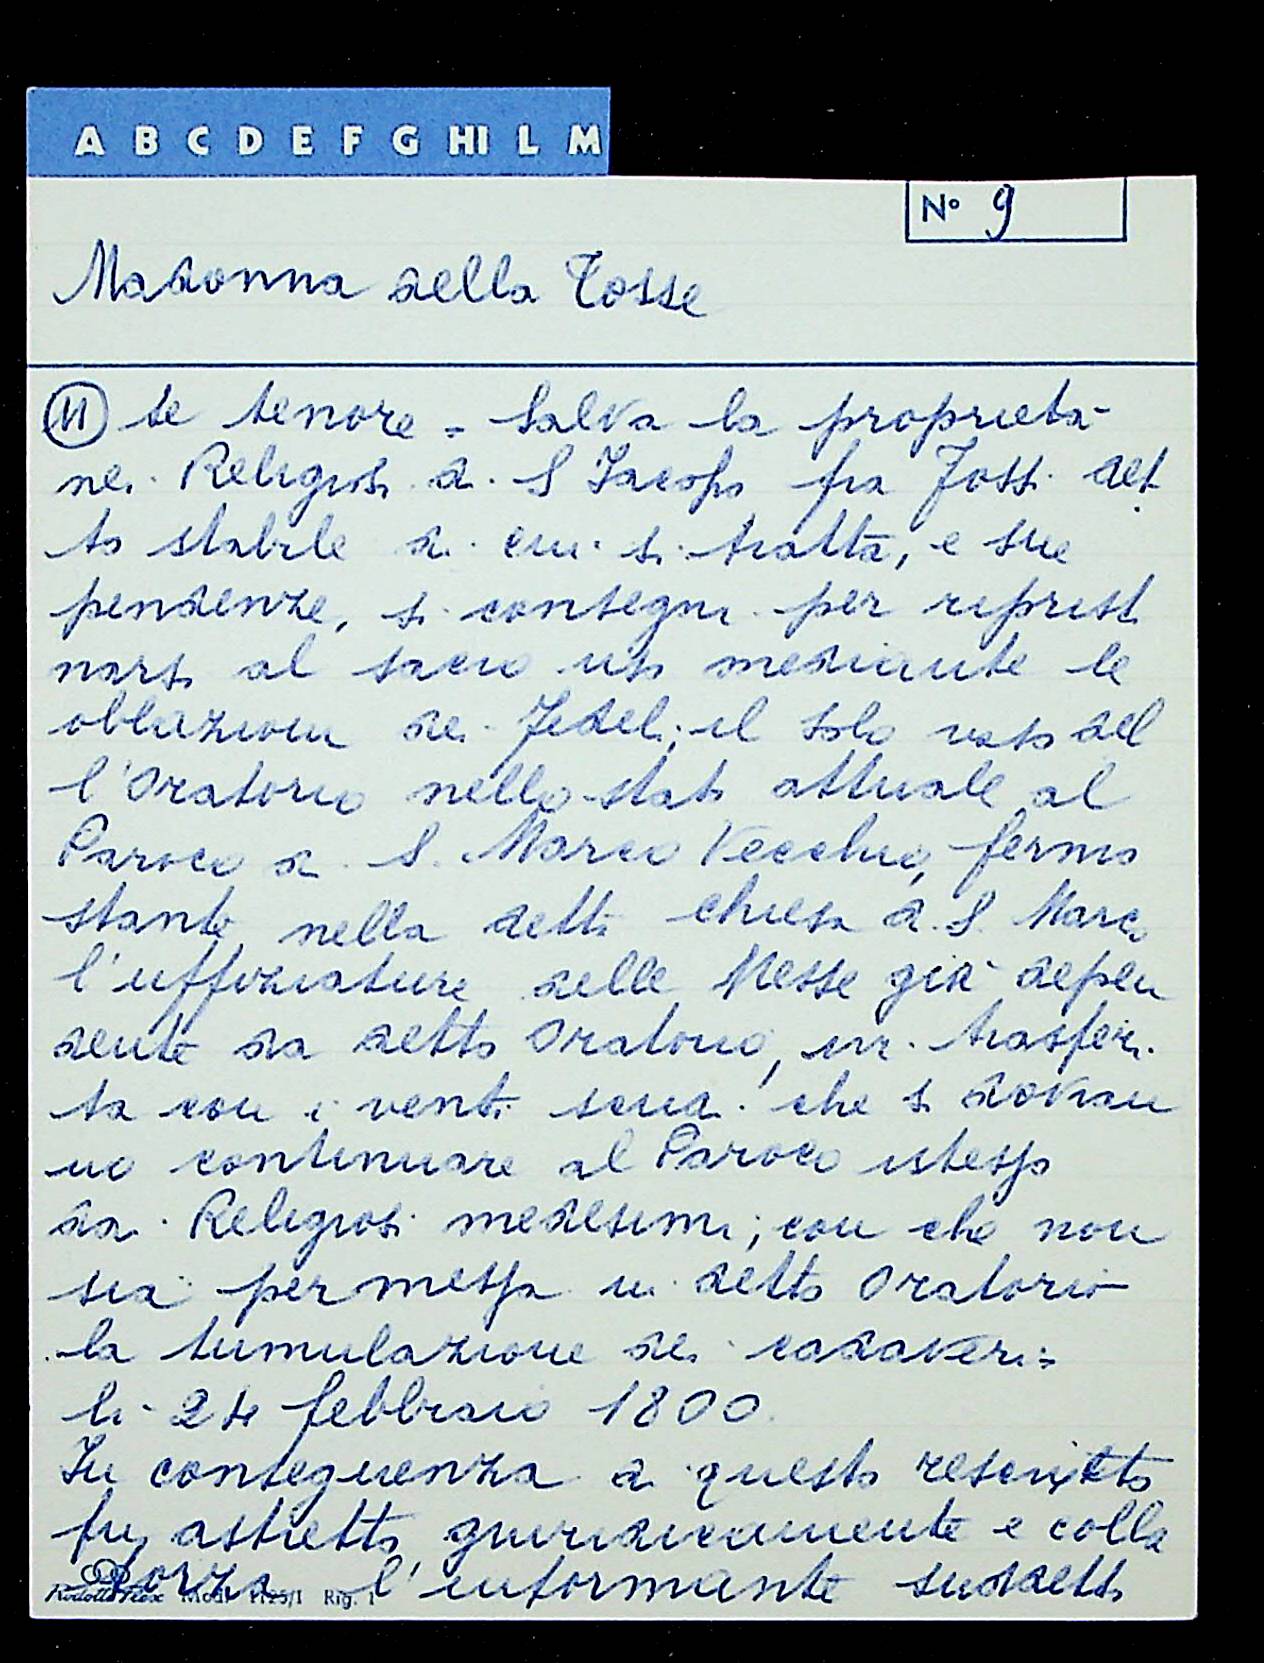 A B C D E F G HI L M
N° 9
Madonna della Tosse
(11) te tenore = Salva la proprietà
nei Religiosi di S Iacopo fra Fossi det
to stabile di cui si tratta, e sue
pendenze, si consegni per ripristi
narsi al sacro uso mediante le
oblazioni dei Fedeli; il solo vaso del
l'Oratorio nello stato attuale al
Paroco di S. Marco Vecchio, fermo
stante nella detta chiesa di S. Marco
l'uffiziatura delle Messe già depen
dente da detto Oratorio, ivi trasferi
ta con i venti scudi che si dovran
no continuare al Paroco istesso
dai Religiosi medesimi; con che non
sia permessa in detto Oratorio
la tumulazione dei cadaveri =
li 24 febbraio 1800.
In conseguenza di questo rescritto
fu astretto giuridicamente e colla
forza l'informante suddetto
Mod. 1125/1 Rig. 1